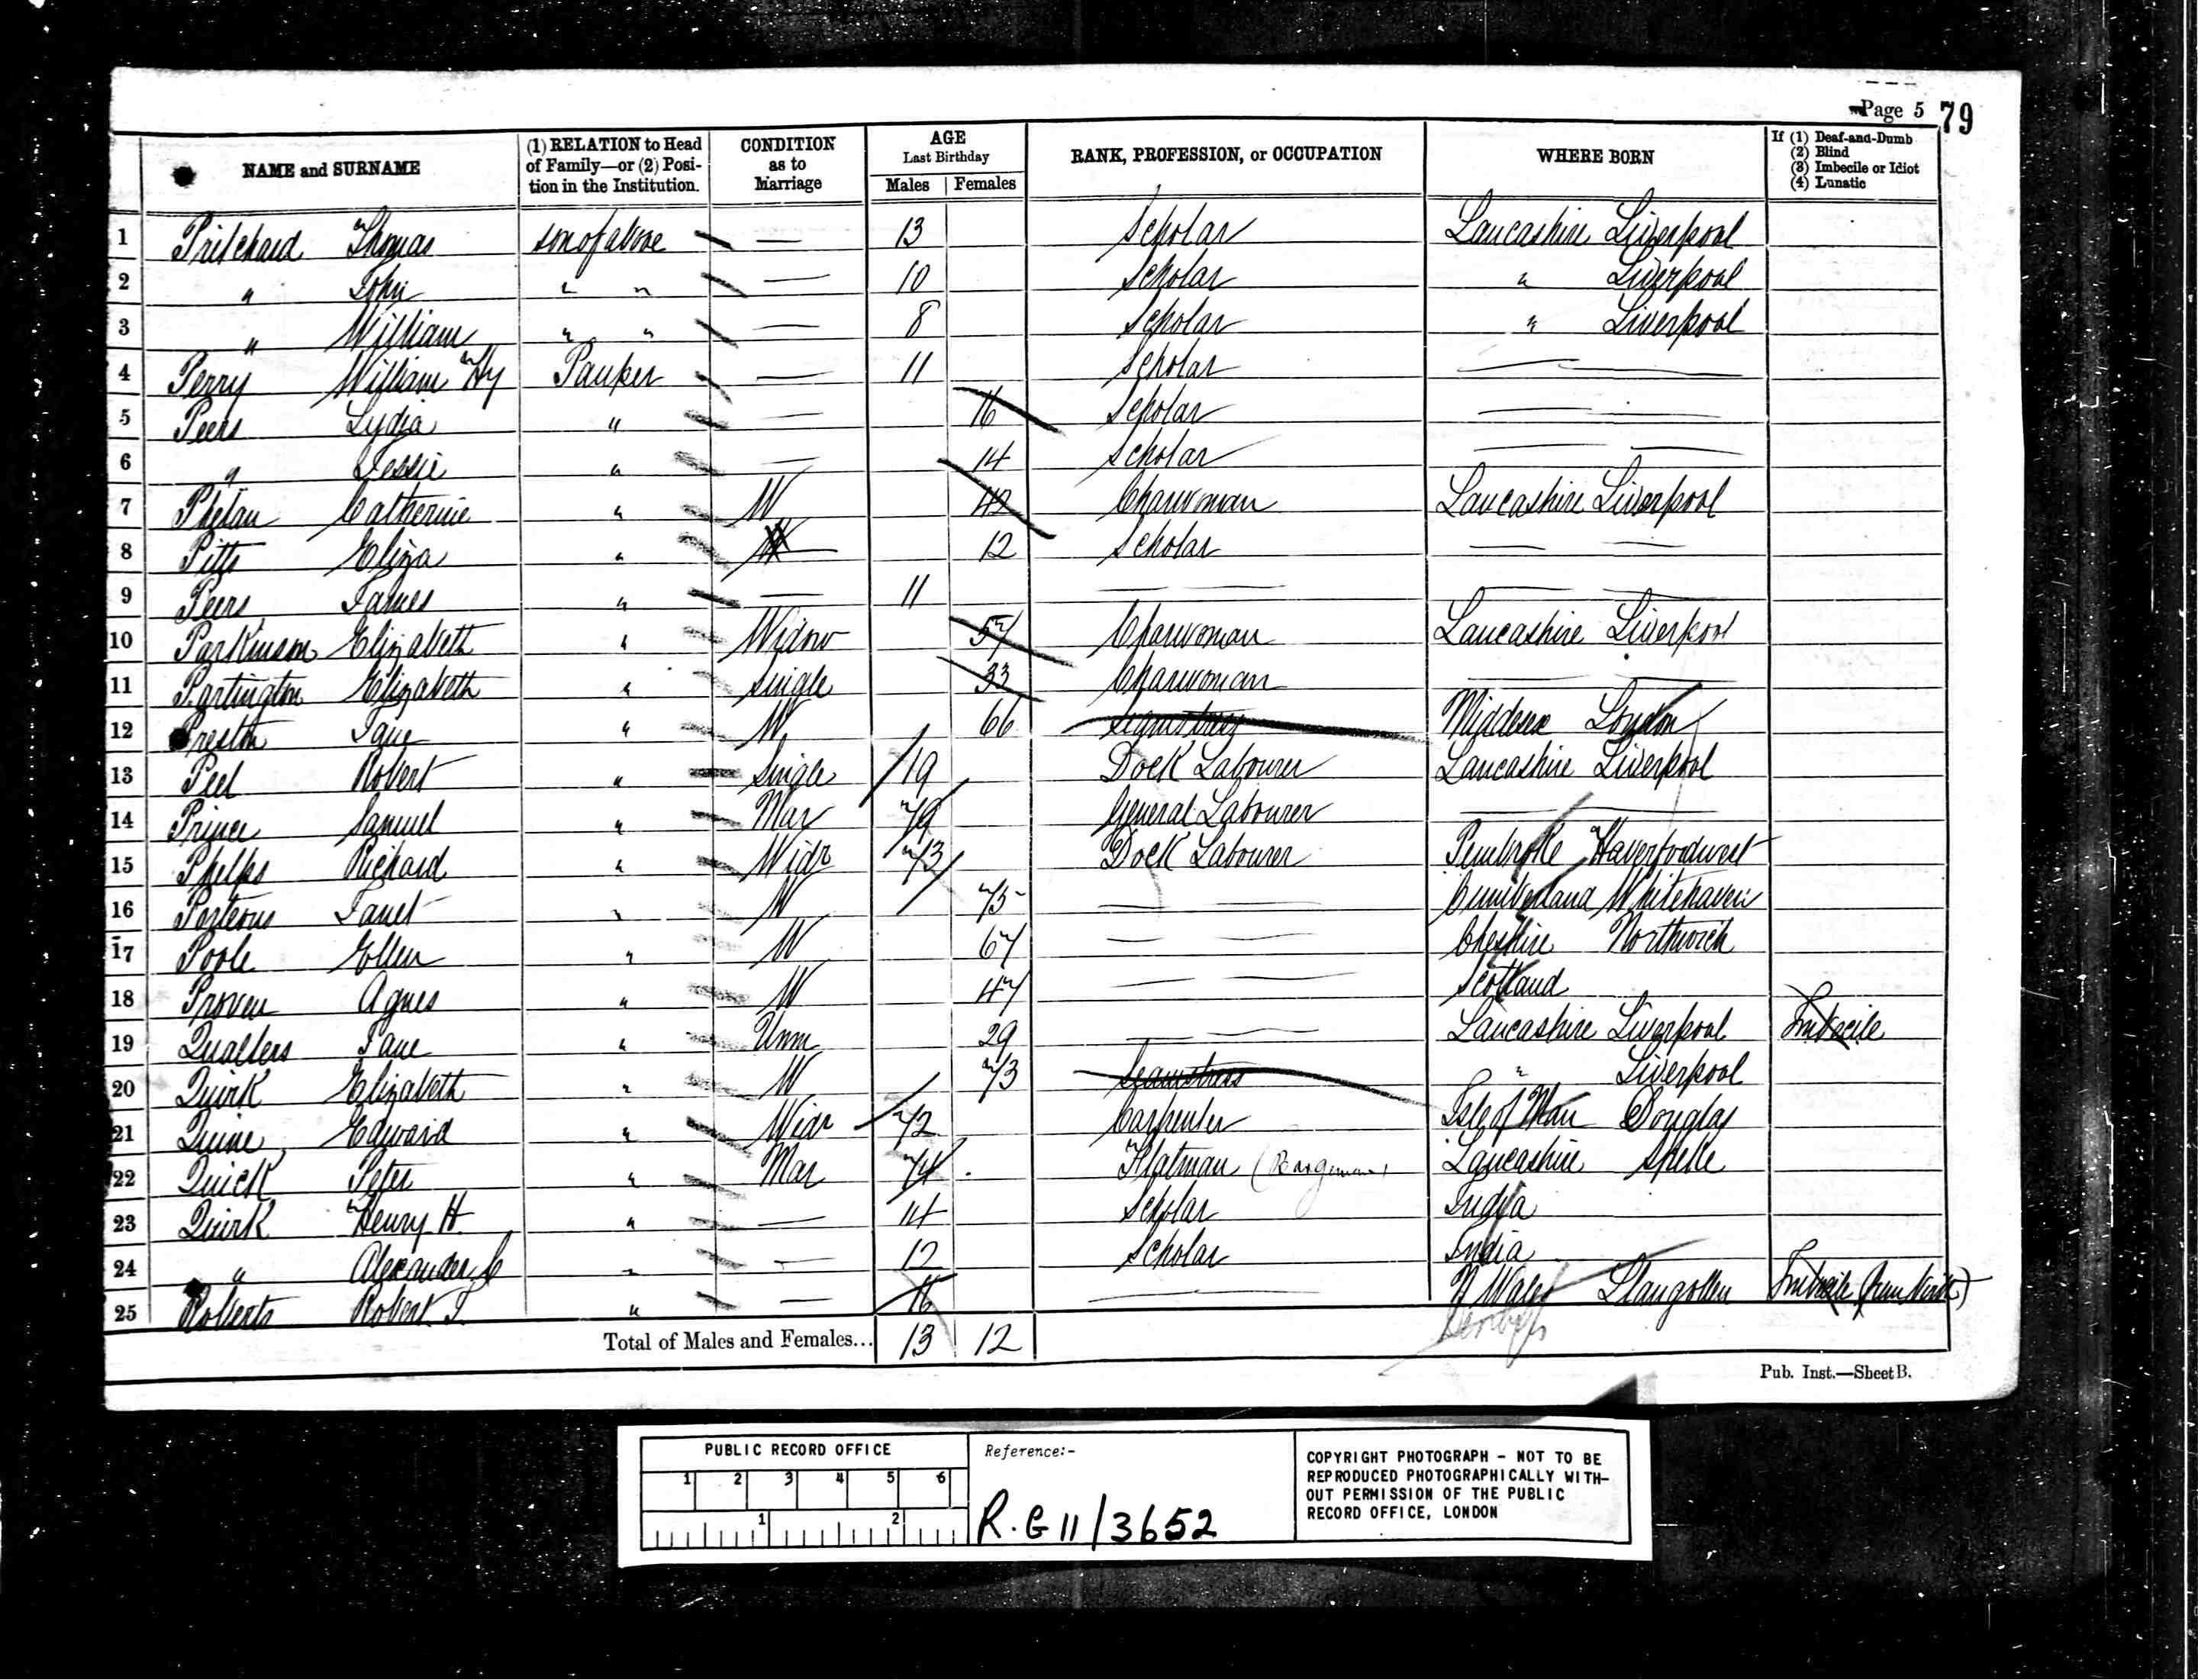 Page 5 79
NAME and SURNAME (1) RELATION to Head of Family—or (2) Position in the Institution. CONDITION as to Marriage AGE Last Birthday Males Females RANK, PROFESSION, or OCCUPATION WHERE BORN If (1) Deaf-and-Dumb (2) Blind (3) Imbecile or Idiot (4) Lunatic
1 Pritchard Thomas son of above — 13 Scholar Lancashire Liverpool
2 " John " " — 10 Scholar " Liverpool
3 " William " " — 8 Scholar " Liverpool
4 Perry William Hy Pauper — 11 Scholar —
5 Peers Lydia " — 16 Scholar —
6 " Jessie " — 14 Scholar — —
7 Phelan Catherine " W 42 Charwoman Lancashire Liverpool
8 Pitts Eliza " — 12 Scholar — —
9 Peers James " — 11 — — —
10 Parkinson Elizabeth " Widow 57 Charwoman Lancashire Liverpool
11 Partington Elizabeth " Single 33 Charwoman — —
12 Preston Jane " W 66 Seamstress Middesex London
13 Peel Robert " Single 19 Dock Labourer Lancashire Liverpool
14 Prince Samuel " Mar 79 General Labourer —
15 Phelps Richard " Widr 73 Dock Labourer Pembroke Haverfordwest
16 Porteous Janet " W 75 — — Cumberland Whitehaven
17 Poole Ellen " W 67 — — Cheshire Northwich
18 Proven Agnes " W 47 — — Scotland
19 Qualters Jane " Unm 29 — — Lancashire Liverpool Imbecile
20 Quirk Elizabeth " W 73 Seamstress " Liverpool
21 Quine Edward " Widr 72 Carpenter Isle of Man Douglas
22 Quick Peter " Mar 74 Flatman (Bargeman) Lancashire Speke
23 Quirk Henry H. " — 14 Scholar India
24 " Alexander C " — 12 Scholar India
25 Roberts Robert J. " — 16 — N Wales Llangollen Imbecile (from birth)
Total of Males and Females... 13 12
Pub. Inst.—Sheet B.
PUBLIC RECORD OFFICE
1 2 3 4 5 6
1 2
Reference:-
R.G 11/3652
COPYRIGHT PHOTOGRAPH - NOT TO BE
REPRODUCED PHOTOGRAPHICALLY WITH-
OUT PERMISSION OF THE PUBLIC
RECORD OFFICE, LONDON